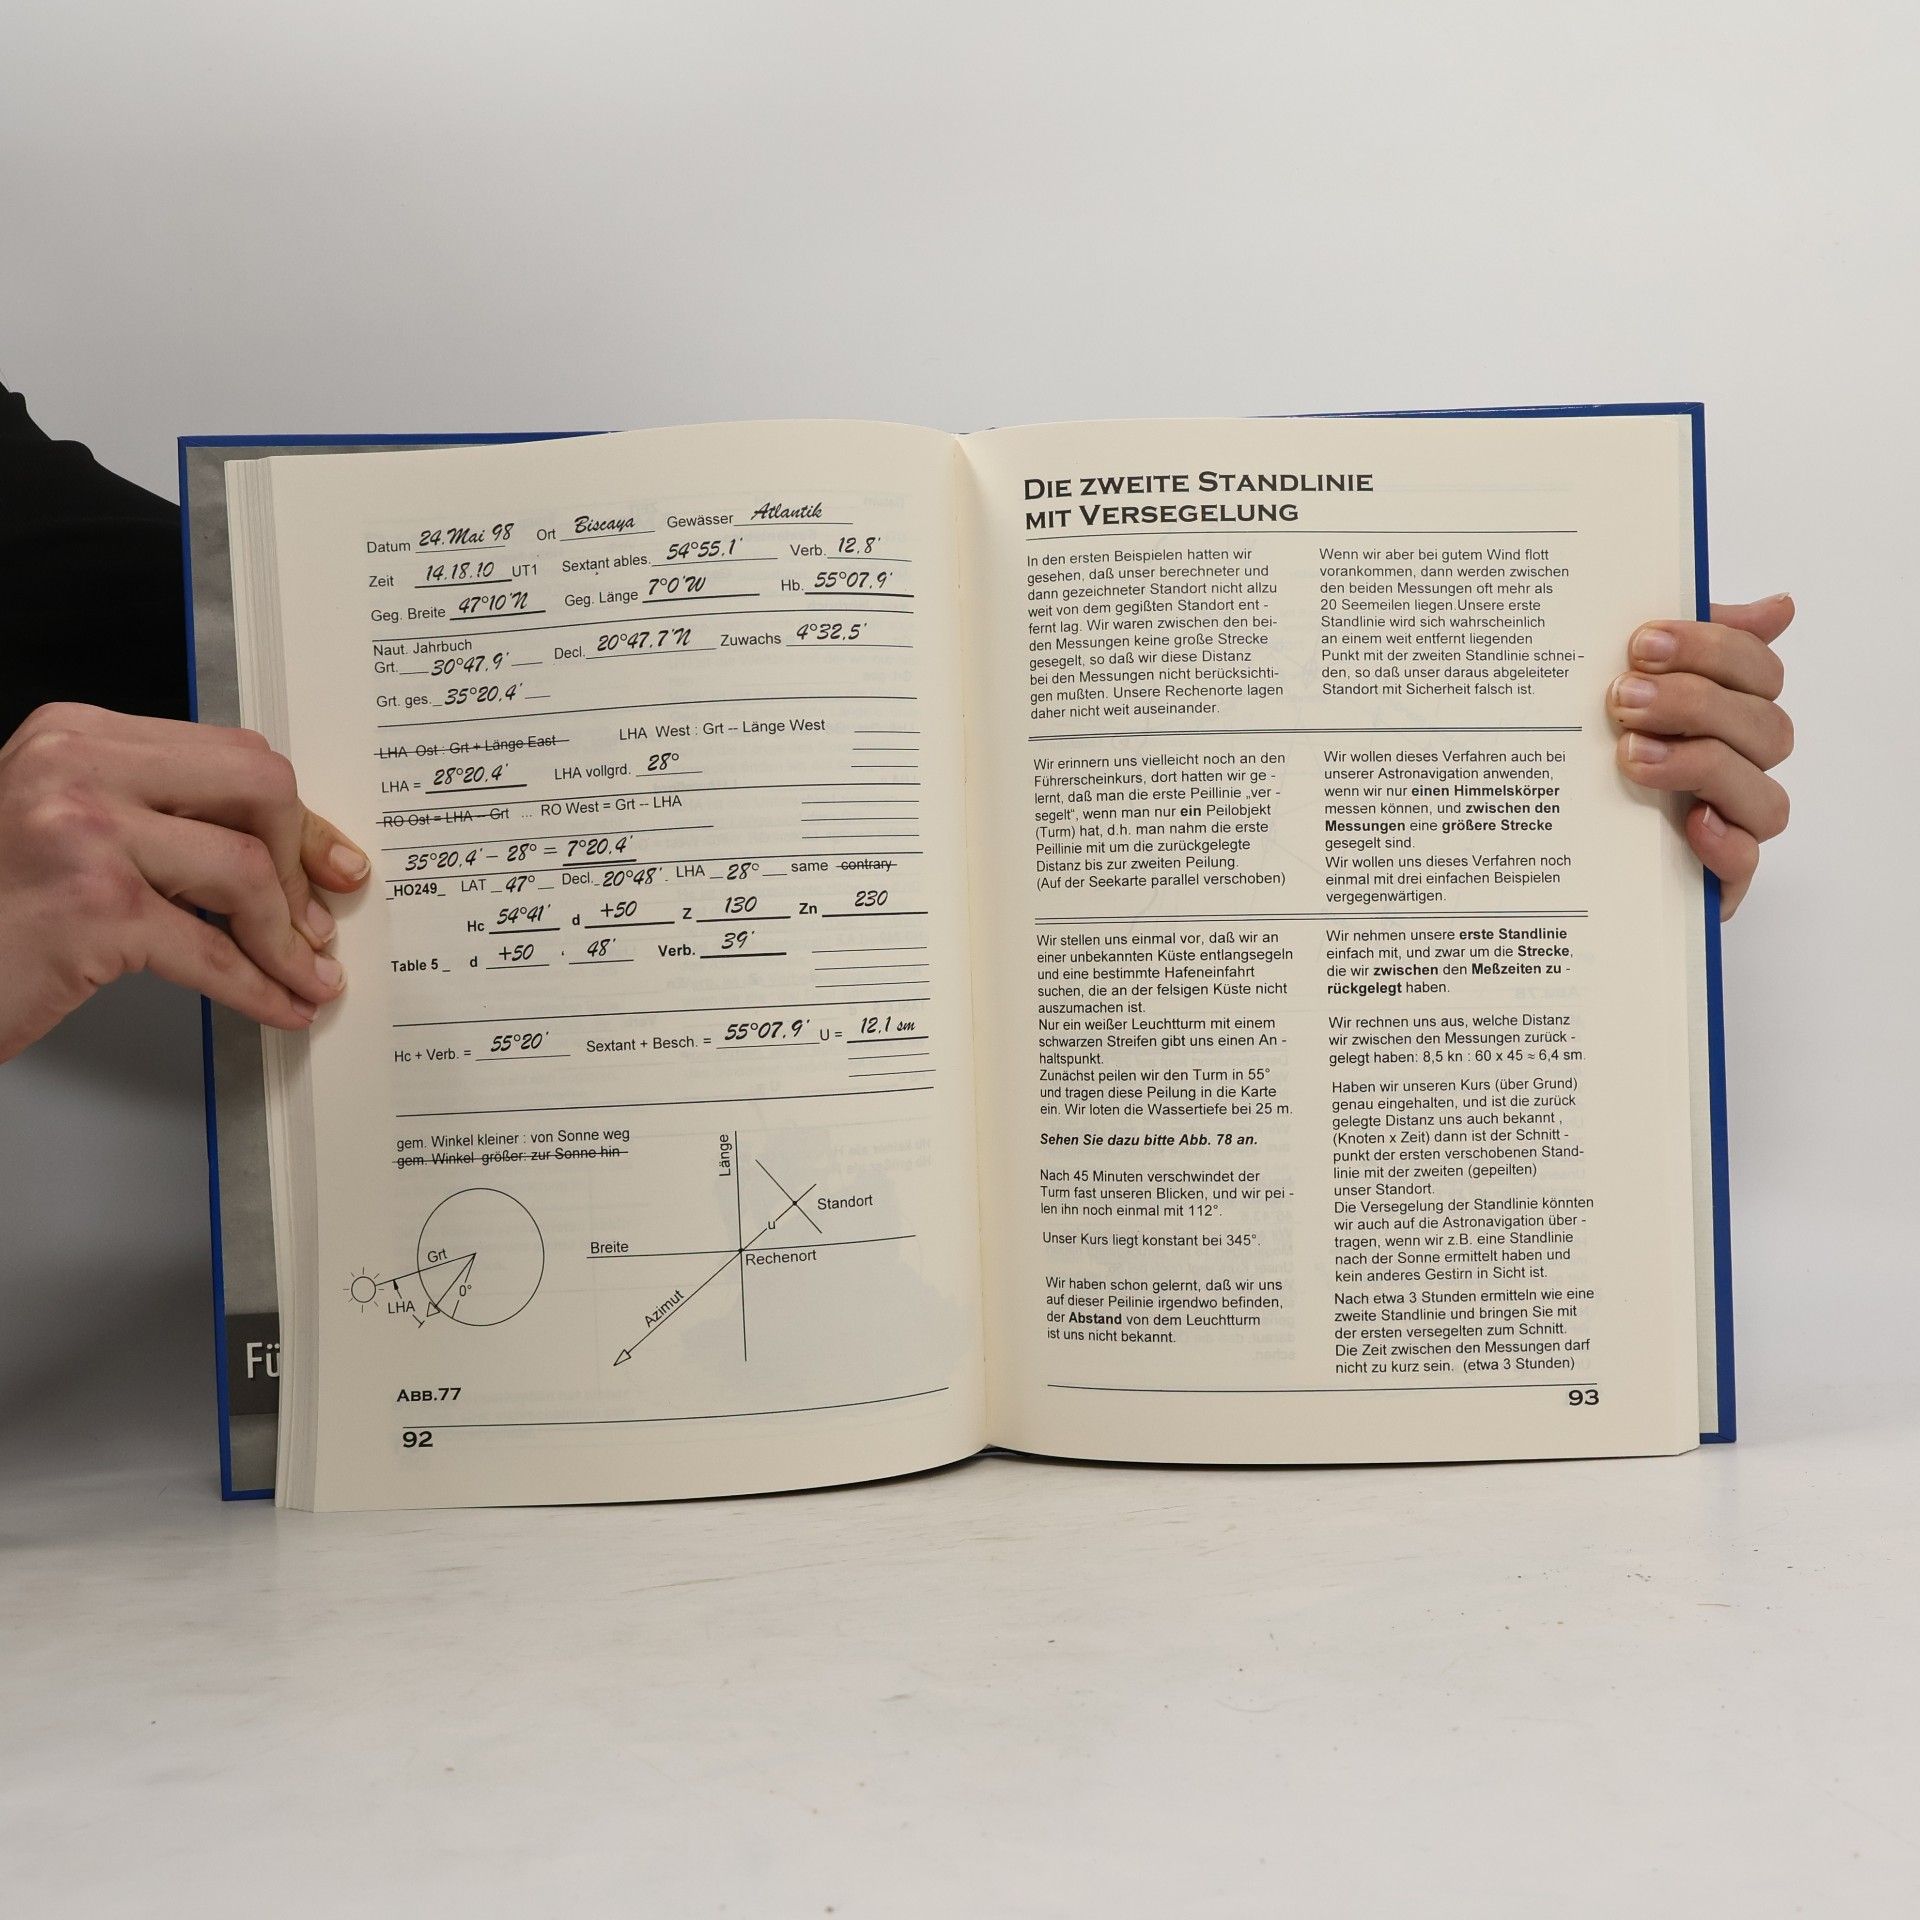 Datum 24.Mai 98 Ort Biscaya Gewässer Atlantik
Zeit 14.18.10 UT1 Sextant ables. 54°55,1' Verb. 12,8'
Geg. Breite 47°10'N Geg. Länge 7°0'W Hb. 55°07,9'
Naut. Jahrbuch
Grt. 30°47,9' Decl. 20°47,7'N Zuwachs 4°32,5'
Grt. ges. 35°20,4'
LHA Ost : Grt + Länge East LHA West : Grt -- Länge West
LHA = 28°20,4' LHA vollgrd. 28°
RO Ost = LHA -- Grt ... RO West = Grt -- LHA
35°20,4' – 28° = 7°20,4'
_HO249_ LAT 47° Decl. 20°48' . LHA 28° same contrary
Hc 54°41' d +50 Z 130 Zn 230
Table 5 _ d +50 , 48' Verb. 39'
Hc + Verb. = 55°20' Sextant + Besch. = 55°07,9' U = 12,1 sm
gem. Winkel kleiner : von Sonne weg
gem. Winkel größer: zur Sonne hin
Länge
Standort
u
Breite
Rechenort
Azimut
Grt
0°
LHA
Abb.77
92
Fü
Die zweite Standlinie
mit Versegelung
In den ersten Beispielen hatten wir
gesehen, daß unser berechneter und
dann gezeichneter Standort nicht allzu
weit von dem gegißten Standort ent -
fernt lag. Wir waren zwischen den bei-
den Messungen keine große Strecke
gesegelt, so daß wir diese Distanz
bei den Messungen nicht berücksichti-
gen mußten. Unsere Rechenorte lagen
daher nicht weit auseinander.
Wenn wir aber bei gutem Wind flott
vorankommen, dann werden zwischen
den beiden Messungen oft mehr als
20 Seemeilen liegen.Unsere erste
Standlinie wird sich wahrscheinlich
an einem weit entfernt liegenden
Punkt mit der zweiten Standlinie schnei –
den, so daß unser daraus abgeleiteter
Standort mit Sicherheit falsch ist.
Wir erinnern uns vielleicht noch an den
Führerscheinkurs, dort hatten wir ge -
lernt, daß man die erste Peillinie „ver -
segelt“, wenn man nur ein Peilobjekt
(Turm) hat, d.h. man nahm die erste
Peillinie mit um die zurückgelegte
Distanz bis zur zweiten Peilung.
(Auf der Seekarte parallel verschoben)
Wir wollen dieses Verfahren auch bei
unserer Astronavigation anwenden,
wenn wir nur einen Himmelskörper
messen können, und zwischen den
Messungen eine größere Strecke
gesegelt sind.
Wir wollen uns dieses Verfahren noch
einmal mit drei einfachen Beispielen
vergegenwärtigen.
Wir stellen uns einmal vor, daß wir an
einer unbekannten Küste entlangsegeln
und eine bestimmte Hafeneinfahrt
suchen, die an der felsigen Küste nicht
auszumachen ist.
Nur ein weißer Leuchtturm mit einem
schwarzen Streifen gibt uns einen An -
haltspunkt.
Zunächst peilen wir den Turm in 55°
und tragen diese Peilung in die Karte
ein. Wir loten die Wassertiefe bei 25 m.
Sehen Sie dazu bitte Abb. 78 an.
Nach 45 Minuten verschwindet der
Turm fast unseren Blicken, und wir pei -
len ihn noch einmal mit 112°.
Unser Kurs liegt konstant bei 345°.
Wir haben schon gelernt, daß wir uns
auf dieser Peilinie irgendwo befinden,
der Abstand von dem Leuchtturm
ist uns nicht bekannt.
Wir nehmen unsere erste Standlinie
einfach mit, und zwar um die Strecke,
die wir zwischen den Meßzeiten zu -
rückgelegt haben.
Wir rechnen uns aus, welche Distanz
wir zwischen den Messungen zurück -
gelegt haben: 8,5 kn : 60 x 45 ≈ 6,4 sm.
Haben wir unseren Kurs (über Grund)
genau eingehalten, und ist die zurück
gelegte Distanz uns auch bekannt ,
(Knoten x Zeit) dann ist der Schnitt -
punkt der ersten verschobenen Stand-
linie mit der zweiten (gepeilten)
unser Standort.
Die Versegelung der Standlinie könnten
wir auch auf die Astronavigation über -
tragen, wenn wir z.B. eine Standlinie
nach der Sonne ermittelt haben und
kein anderes Gestirn in Sicht ist.
Nach etwa 3 Stunden ermitteln wie eine
zweite Standlinie und bringen Sie mit
der ersten versegelten zum Schnitt.
Die Zeit zwischen den Messungen darf
nicht zu kurz sein. (etwa 3 Stunden)
93